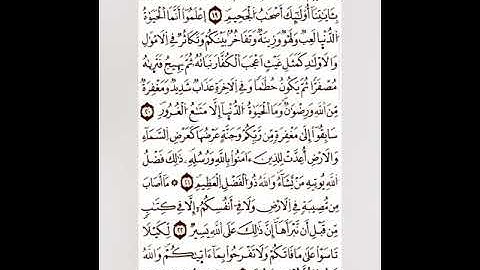 بِـَٔايَٰتِنَآ أُوْلَٰٓئِكَ أَصْحَٰبُ اُ۬لْجَحِيمِۖ ١٩ اِ۪عْلَمُوٓاْ أَنَّمَا اَ۬لْحَيَوٰةُ
اُ۬لدُّنْيَا لَعِبٞ وَلَهْوٞ وَزِينَةٞ وَتَفَاخُرُۢ بَيْنَكُمْ وَتَكَاثُرٞ فِے اِ۬لَامْوَٰلِ
وَالَاوْلَٰدِ كَمَثَلِ غَيْثٍ اَعْجَبَ اَ۬لْكُفَّارَ نَبَاتُهُۥ ثُمَّ يَهِيجُ فَتَر۪يٰهُ
مُصْفَرّاٗ ثُمَّ يَكُونُ حُطَٰماٗۖ وَفِے اِ۬لَاخِرَةِ عَذَابٞ شَدِيدٞ وَمَغْفِرَةٞ
مِّنَ اَ۬للَّهِ وَرِضْوَٰنٞۖ وَمَا اَ۬لْحَيَوٰةُ اُ۬لدُّنْيَآ إِلَّا مَتَٰعُ اُ۬لْغُرُورِۖ ٢٠
سَابِقُوٓاْ إِلَىٰ مَغْفِرَةٖ مِّن رَّبِّكُمْ وَجَنَّةٍ عَرْضُهَا كَعَرْضِ اِ۬لسَّمَآءِ
وَالَارْضِ أُعِدَّتْ لِلذِينَ ءَامَنُواْ بِاللَّهِ وَرُسُلِهِۦۖ ذَٰلِكَ فَضْلُ
اُ۬للَّهِ يُوتِيهِ مَنْ يَّشَآءُۖ وَاللَّهُ ذُو اُ۬لْفَضْلِ اِ۬لْعَظِيمِۖ ٢١ ۞ مَآ أَصَابَ
مِن مُّصِيبَةٖ فِے اِ۬لَارْضِ وَلَا فِےٓ أَنفُسِكُمُۥٓ إِلَّا فِے كِتَٰبٖ
مِّن قَبْلِ أَن نَّبْرَأَهَآۖ إِنَّ ذَٰلِكَ عَلَى اَ۬للَّهِ يَسِيرٞ ٢٢ لِّكَيْلَا
تَاسَوْاْ عَلَىٰ مَا فَاتَكُمْ وَلَا تَفْرَحُواْ بِمَآ ءَات۪يٰكُمْۖ وَاللَّهُ